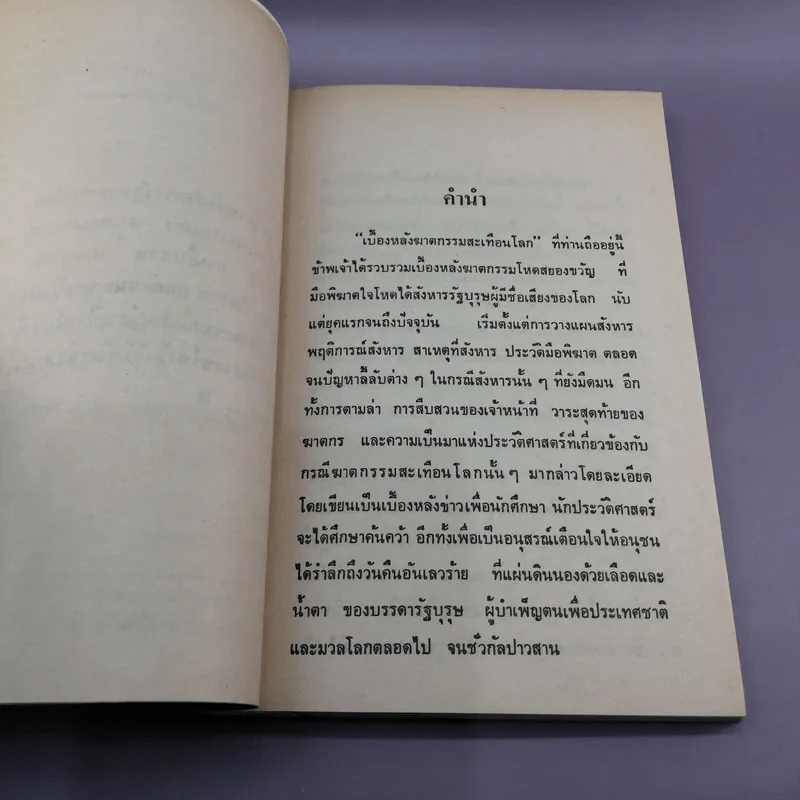 คำนำ
“เบื้องหลังฆาตกรรมสะเทือนโลก” ที่ท่านถืออยู่นี้
ข้าพเจ้าได้รวบรวมเบื้องหลังฆาตกรรมโหดสยองขวัญ ที่
มือพิฆาตใจโหดได้สังหารรัฐบุรุษผู้มีชื่อเสียงของโลก นับ
แต่ยุคแรกจนถึงปัจจุบัน เริ่มตั้งแต่การวางแผนสังหาร
พฤติการณ์สังหาร สาเหตุที่สังหาร ประวัติมือพิฆาต ตลอด
จนปัญหาลี้ลับต่าง ๆ ในกรณีสังหารนั้น ๆ ที่ยังมืดมน อีก
ทั้งการตามล่า การสืบสวนของเจ้าหน้าที่ วาระสุดท้ายของ
ฆาตกร และความเป็นมาแห่งประวัติศาสตร์ที่เกี่ยวข้องกับ
กรณีฆาตกรรมสะเทือนโลกนั้น ๆ มากล่าวโดยละเอียด
โดยเขียนเป็นเบื้องหลังข่าวเพื่อนักศึกษา นักประวัติศาสตร์
จะได้ศึกษาค้นคว้า อีกทั้งเพื่อเป็นอนุสรณ์เตือนใจให้อนุชน
ได้รำลึกถึงวันคืนอันเลวร้าย ที่แผ่นดินนองด้วยเลือดและ
น้ำตา ของบรรดารัฐบุรุษ ผู้บำเพ็ญตนเพื่อประเทศชาติ
และมวลโลกตลอดไป จนชั่วกัลปาวสาน